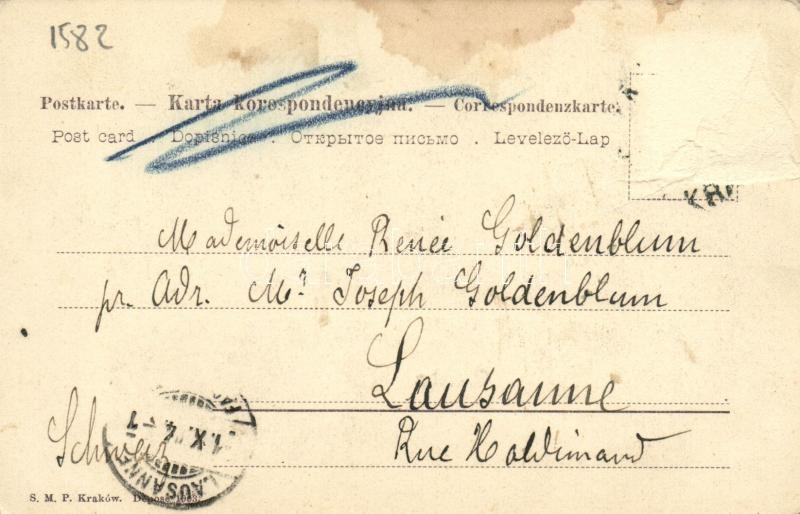 1582
Postkarte. — Karta korespondencyjna. — Correspondenzkarte.
Post card . Dopisnice . Открытое письмо . Levelező-Lap
KRA
Mademoiselle Renée Goldenblum
pr. Adr. Mr Joseph Goldenblum
Lausanne
Schweiz
Rue Haldimand
LAUSANNE
1.X.
S. M. P. Kraków. Déposé 1903.